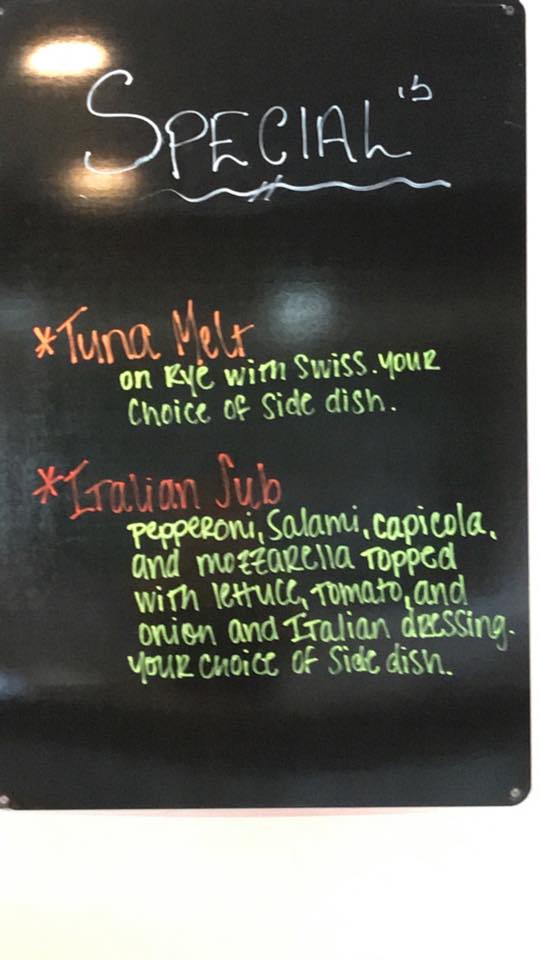 SPECIAL's
*Tuna Melt
on Rye with Swiss. Your
Choice of Side dish.
*Italian Sub
pepperoni, Salami, capicola,
and mozzarella Topped
with lettuce, Tomato, and
onion and Italian dressing.
your choice of Side dish.